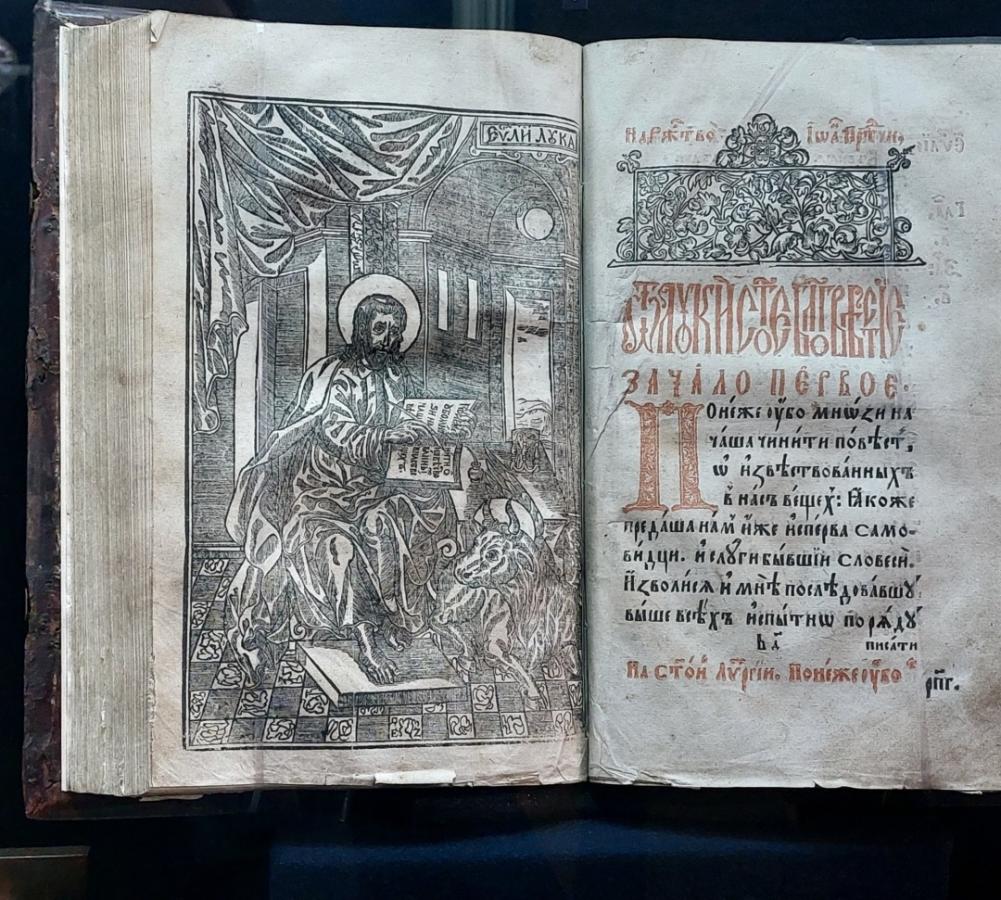 ЕѴ҃ЛИ ЛУКА
На рж҃тво̀ Іѡ҃а. Прⷣтчи.
Ѿ лꙋки́ ст҃о́е бл҃говѣствова́нїе
Зача́ло пе́рвое.
Поне́же ᲂу҆́бо мно́зи на
ча́ша чини́ти по́вѣсть,
ѡ҆ и҆звѣ́ствованныхъ
в̾ на́съ ве́щехъ: ꙗ҆́коже
преда́ша на́мъ и҆̀же и҆спе́рва само-
ви́дци. и҆ слꙋги́ бы́вшїи словесѝ.
И҆зво́лисѧ и҆ мнѣ̀ послѣ́довавшꙋ
вы́ше всѣ́хъ и҆спы́тнѡ по рѧ́дꙋ
писа́ти
На ст҃о́й лѵⷮргі́и. Поне́же ᲂу҆́бо
рп҃г.